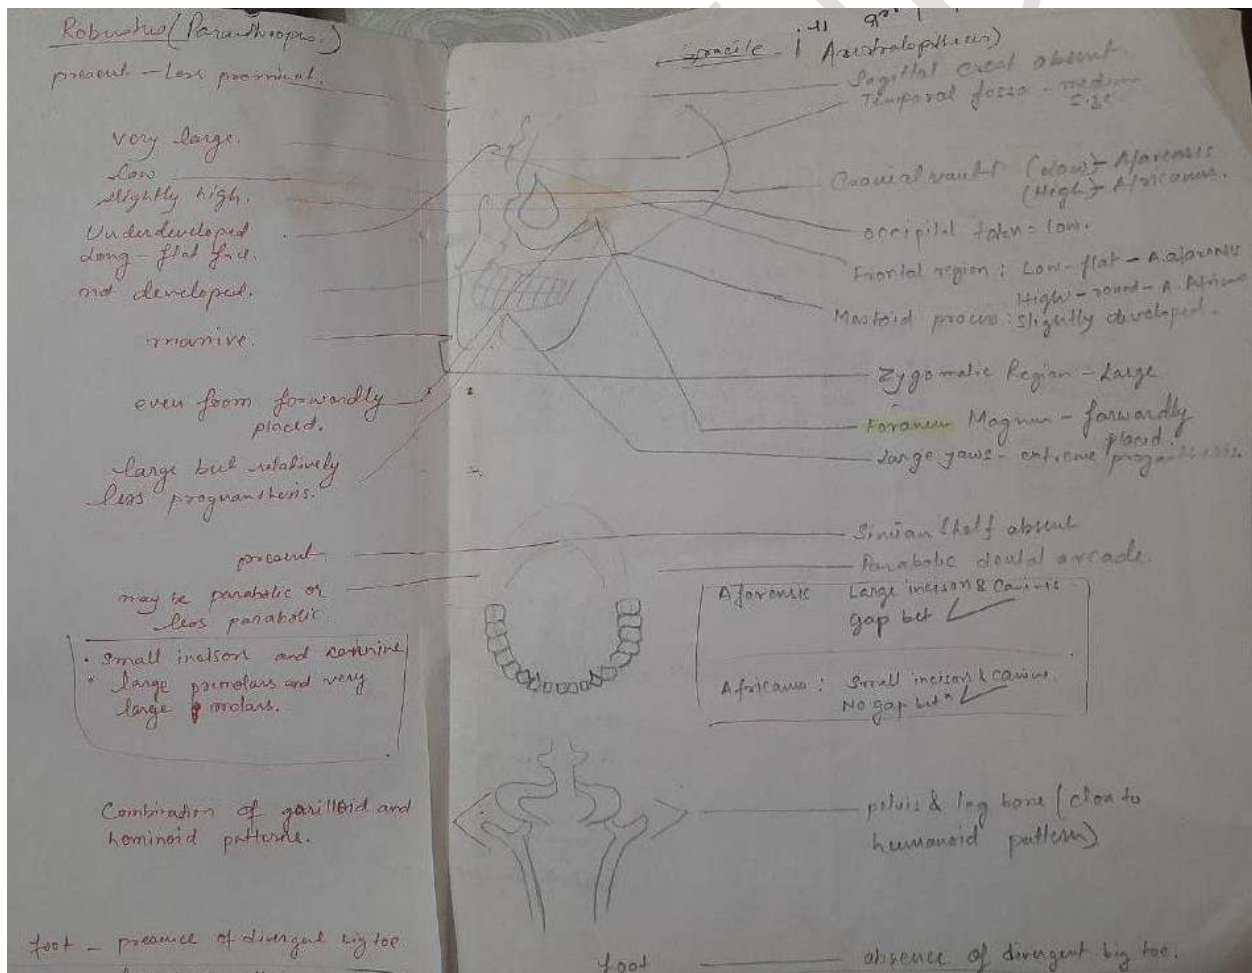 Robustus (Paranthropus.)
present - Less prominent.
very large.
Low
slightly high.
Underdeveloped
Long - flat face.
not developed.
massive.
even from forwardly
placed.
large but relatively
less prognanthesis.
present
may be parabolic or
less parabolic
• Small incisors and cannine
• large premolars and very
large molars.
Combination of gorilloid and
hominoid patterns.
foot - presence of divergent big toe.
gracile -
Australopithecus)
Sagittal crest absent.
Temporal fossa - medium
size
Cranial vault (Low) - Afarensis
(High) - Africanus.
occipital = Low.
Frontal region : Low - flat - A. afarensis
High - round - A. Africa
Mastoid process : slightly developed.
Zygomatic Region - Large
Magnum - forwardly
placed.
Large jaws - extreme
Simian Shelf absent
Parabolic dental arcade.
Large incisors & Canines
Gap bet
Africanus : Small incisors & canine
No gap betn
pelvis & leg bone (close to
humanoid pattern)
foot absence of divergent big toe.